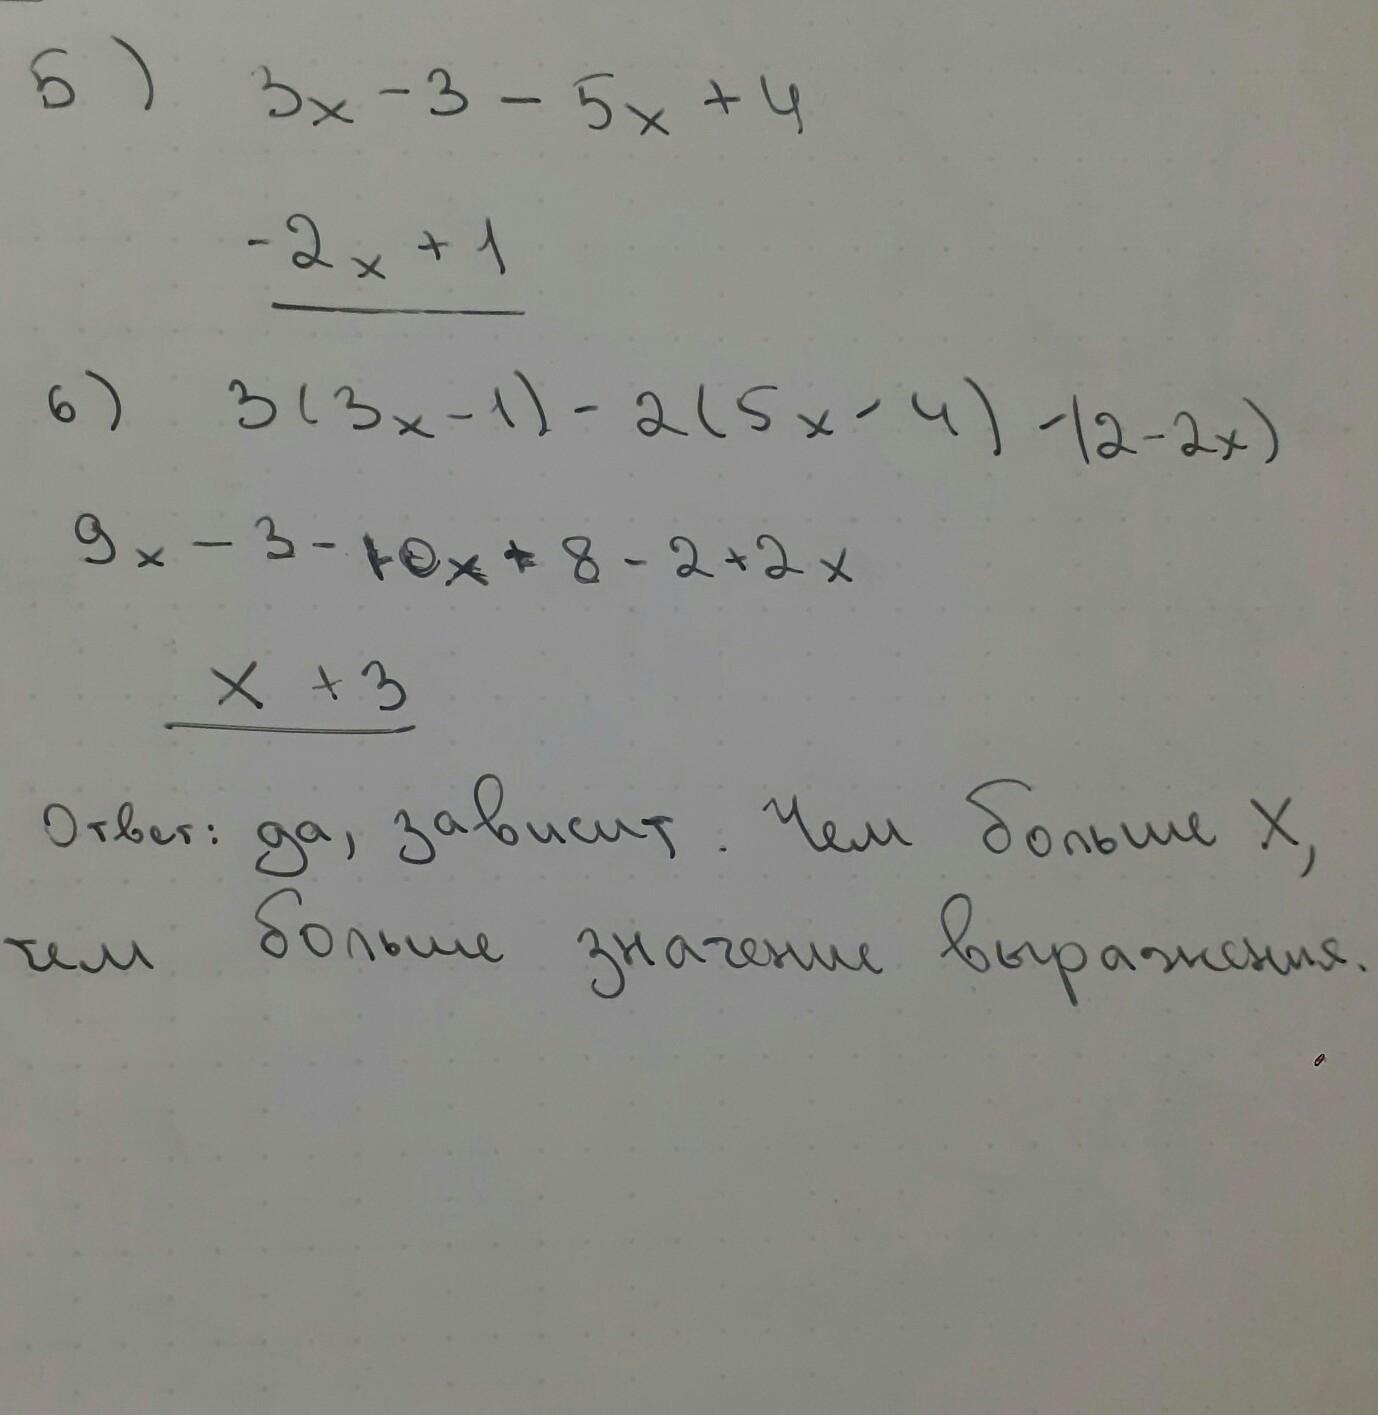 5) 3x - 3 - 5x + 4
-2x + 1
6) 3(3x - 1) - 2(5x - 4) - (2 - 2x)
9x - 3 - 10x + 8 - 2 + 2x
x + 3
Ответ: да, зависит. Чем больше X,
тем больше значение выражения.